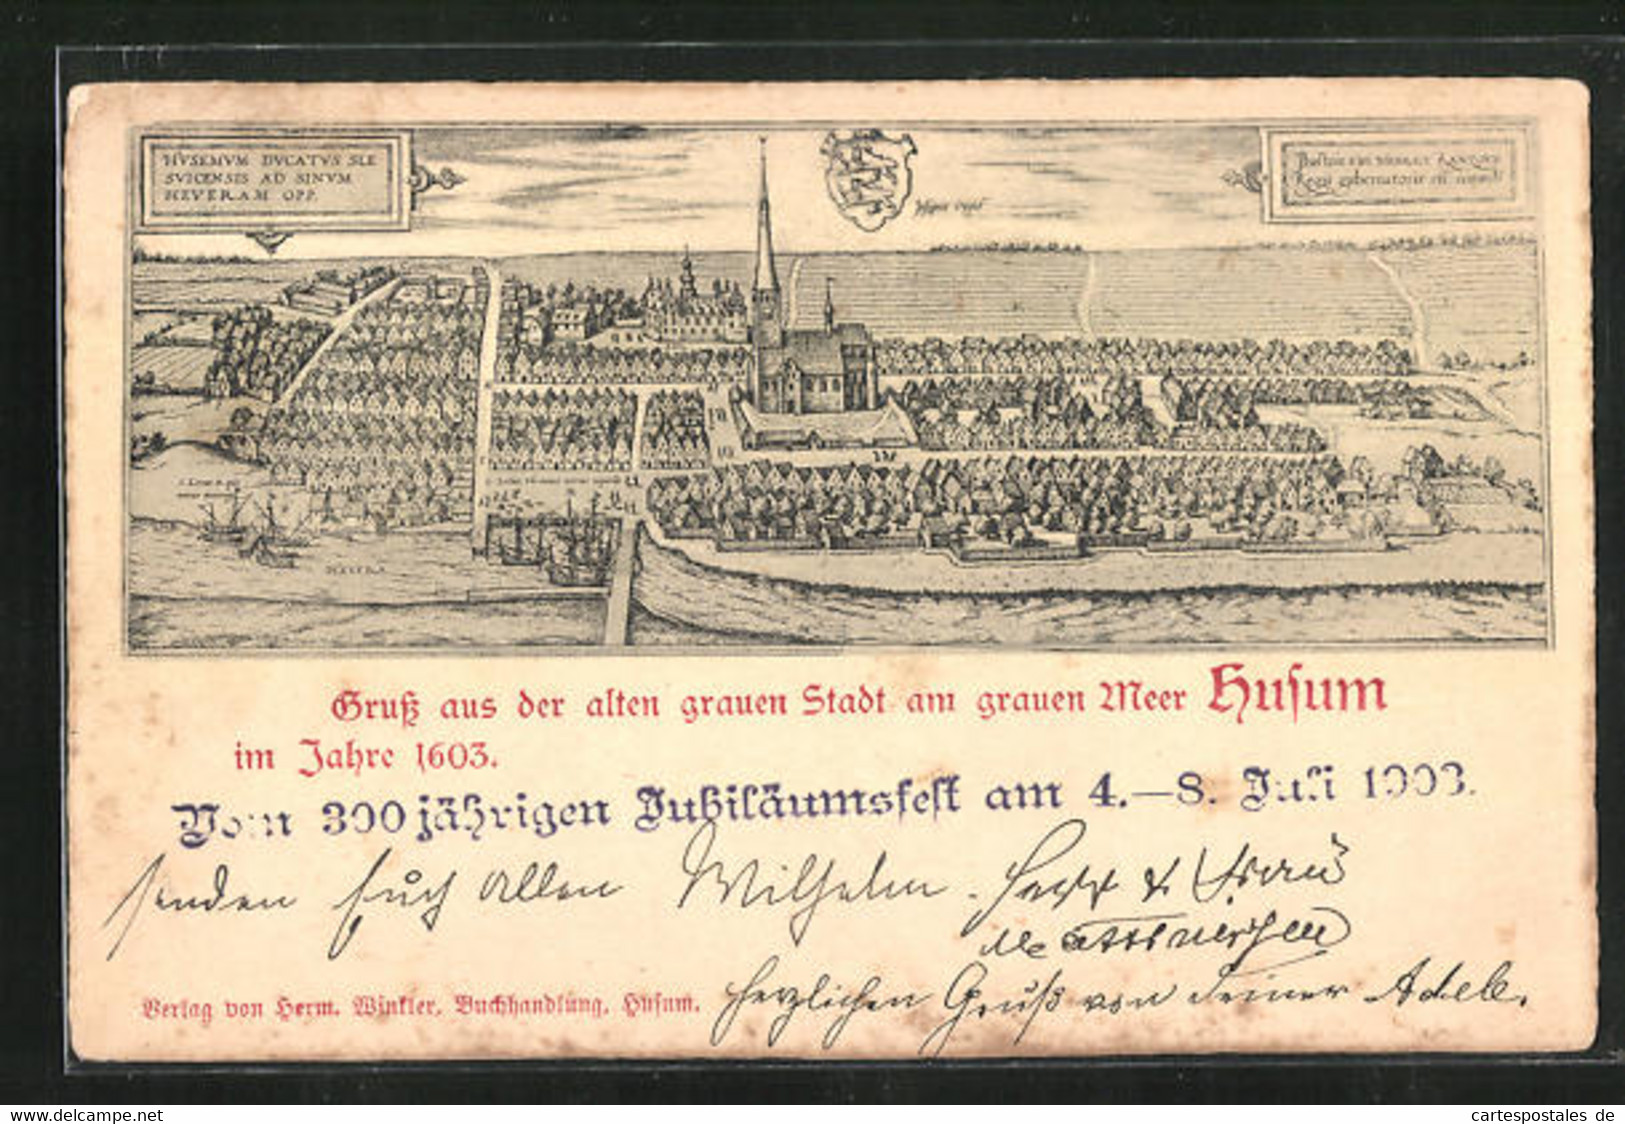 HVSEMVM DVCATVS SLE
SVICENSIS AD SINVM
HEVERAM OPP.
HEVERA
Gruß aus der alten grauen Stadt am grauen Meer Husum
im Jahre 1603.
Vom 300jährigen Jubiläumsfest am 4.—8. Juli 1903.
senden Euch allen Wilhelm. Herr & Frau
Herzlichen Gruß von Deiner Adele.
Verlag von Herm. Winkler, Buchhandlung, Husum.
www.cartespostales.eu
cartespostales de